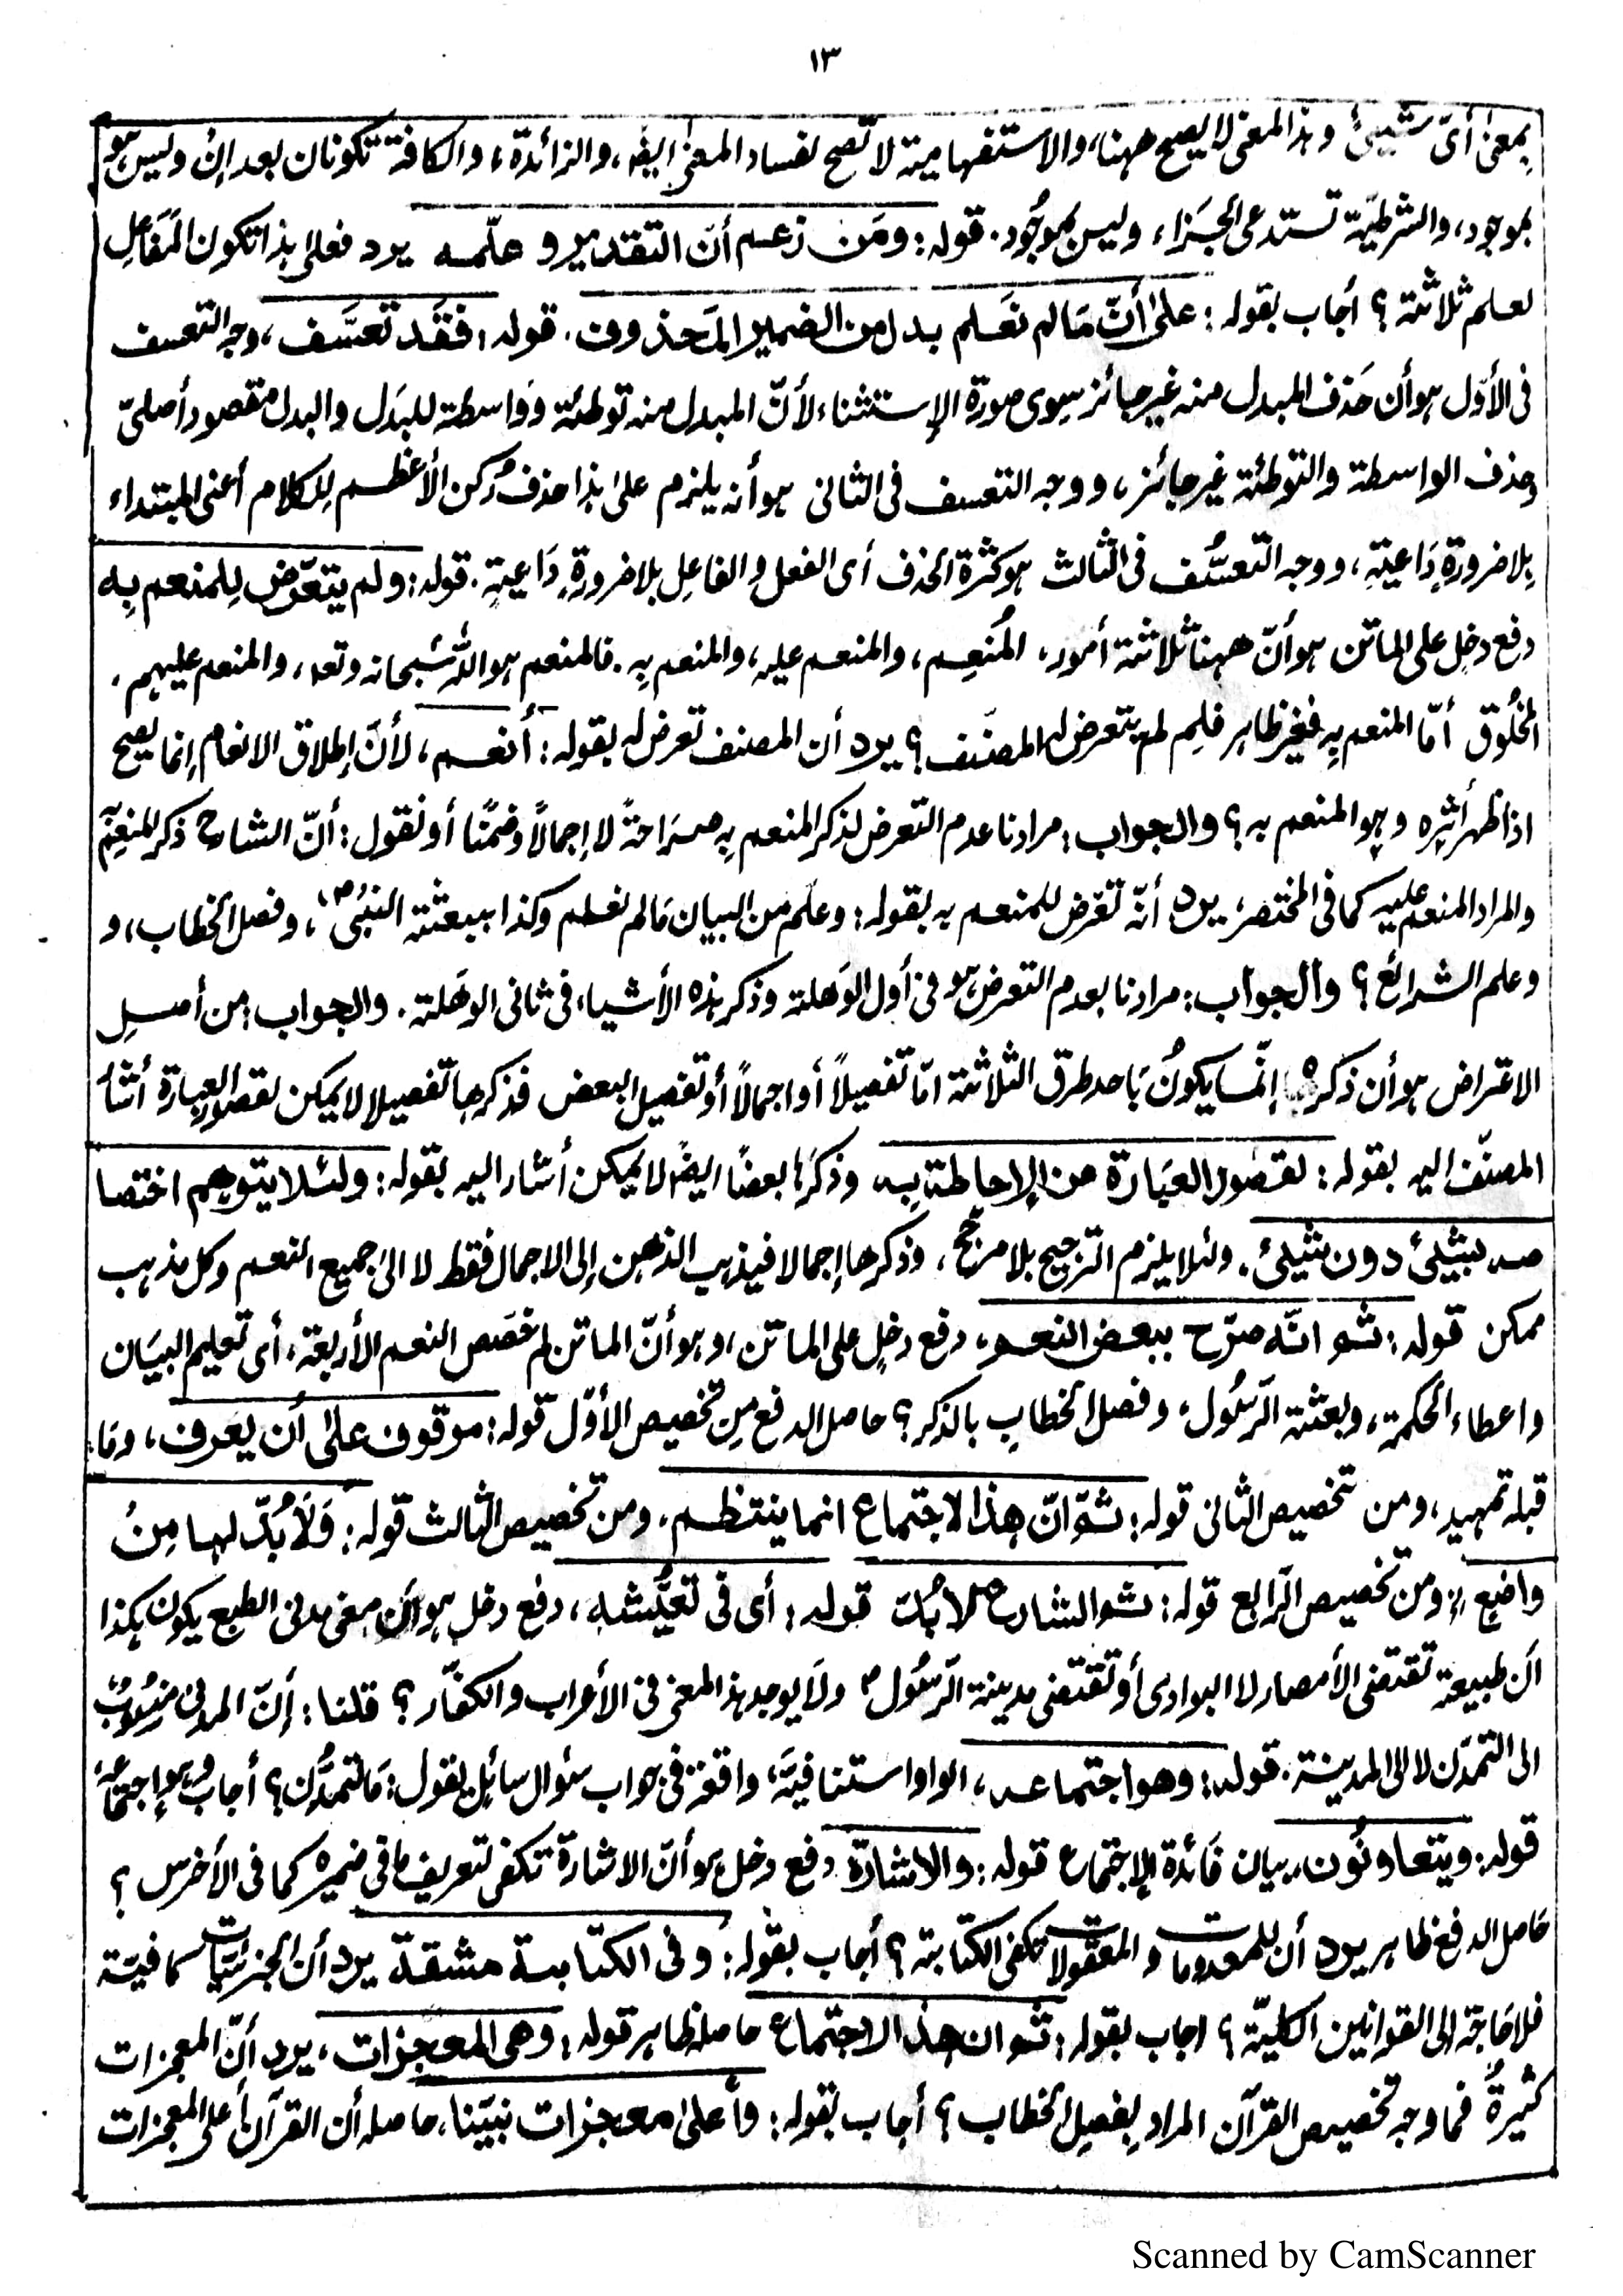 ١٣
بمعنىٰ أىّ شيئ وهذا المعنى لا يصح ههنا، والاستفهامية لا تصح لفساد المعنىٰ ايضًا، والزائدة، والكافة تكونان بعد إنْ وليس هو
بموجود، والشرطيّة تستدعى الجَزاء، وليس بموجُود. قوله: ومَن زعم أنّ التقدير و علّمه يرد فعلىٰ هذا تكون المَفاعِيل
لعلم ثلاثة؟ أجاب بقوله: علىٰ أنّ مَا لم نَعلم بدل من الضمير المَحذوف. قوله: فقَد تعسَّف، وجه التعسف
فى الأوّل هو أن حَذف المبدل منه غير جائز سِوى صورة الإستثناء لأنّ المبدل منه توطئة ووَاسطة للبدَل والبدل مقصود أصلىّ
وحذف الواسطة والتوطئة غير جائز، ووجه التعسف فى الثانى هو أنه يلزم علىٰ هذا حذف رُكن الأعظم لِلكلام أعنى المبتداء
بِلا ضرورةٍ دَاعيةٍ، ووجه التعسُّف فى الثالث هو كثرة الحذف أى الفعل والفاعل بلا ضرورةٍ دَاعيةٍ. قوله: ولم يتعَرّض لِلمنعم بِه
دفع دخل على الماتن هو أنّ ههنا ثلاثة أمور، المُنعِم، والمنعم عليه، والمنعم بِه. فالمنعم هو اللّٰه سُبحانه وتعه، والمنعم عليهم،
المخلُوق أمّا المنعم بِه فغير ظاهر فلِم لم يتعرض له المصنّف؟ يرد أن المصنف تعرض له بقوله: أنعم، لأنّ إطلاق الانعام إنما يصح
اذا ظهر أثره وهو المنعم به؟ والجواب: مرادنا عدم التعرض لذكر المنعم بِه صرَاحةً لا إجمالاً وضمنًا أو نقول: أنّ الشارح ذكر للمنعِم
والمراد المنعم عليه كما فى المختصر، يرد أنّه تعرّض للمنعم به بقوله: وعلم من البيان مَا لم نعلم وكذا ببعثة النبىُّ ص، وفصل الخطاب، و
وعلم الشرائع؟ والجواب: مرادنا بعدم التعرض هو فى أول الوَهلة وذكر هذه الأشياء فى ثانى الوهَلة. والجواب: من أصل
الاعتراض هو أن ذكره إنّما يكونُ بَاحد طرق الثلاثة امّا تفصيلاً أو اجمالاً أو تفصيل البعض فذكرها تفصيلا لا يمكن لقصور العبارة أشارَ
المصنّف اليه بقوله: لقصُور العبَارة عن الإحاطة به، وذكرَها بعضًا ايضًا لا يمكن أشار اليه بقوله: ولئلا يتوهم اختصا
صه بشيئ دون شيئ. ولئلا يلزم الترجيح بلا مرجّح، وذكرها إجمالا فيذهب الذهن إلى الاجمال فقط لا الىٰ جميع النعم وكل مذهب
ممكن قوله: ثم انّه صرّح ببعض النعم، دفع دخلٍ على الماتن، وهو أنّ الماتن لم خصّص النعم الأربعة، أى تعليم البيَان
واعطاء الحكمة، وبعثة الرّسُول، وفصل الخطاب بالذكر؟ حاصل الدفع مِن تخصيص الأوّل قوله: موقوف علىٰ أن يعَرف، ومَا
قبله تمهيد، ومن تخصيص الثانى قوله: ثمّ انّ هذا الاجتماع انما ينتظم، ومن تخصيص الثالث قوله: وَلَا بُدّ لهَا مِنُ
واضِع، ومن تخصيص الرّابع قوله: ثم الشارع لا بُدّ قوله: أى فى تعيُّشه، دفع دخل هو أن معنى مدنى الطبع يكون هكذا
أن طبيعته تقتضى الأمصار لا البوادى أو تقتضى مدينة الرّسُول ص ولَا يوجد هذا المعنى فى الأعراب والكفّار؟ قلنا: إنّ المدنى منسُوبٌ
الى التمدّن لا الى المدينة. قوله: وهو اجتماعه، الواو استئنافيَّة، واقعة فى جواب سئوال سائِل يقول: مَا التمدُّن؟ أجاب وهو إجتماعُهُ
قوله: ويتعاونُون، بيان فَائدة الإجتماع قوله: والاشارة دفع دخل هو أنّ الاشارة تكفى لتعريف ما فى ضميره كما فى الأخرس؟
حَاصل الدفع ظاهر يرد أن للمعدومات والمعقولات تكفى الكتَابة؟ أجاب بقوله: وفى الكتَابة مشقة يرد أن الجزئيات كافيَة
فلا حَاجة الى القوانين الكليّة؟ اجاب بقوله: ثم ان هذا الاجتماع حاصله ظاهر قوله: وهى المعجزات، يرد أنّ المعجزات
كثيرةٌ فما وجه تخصيص القرآن المراد بِفصل الخطاب؟ أجاب بقوله: وأعلىٰ معجزات نبيّنا، حاصله أن القرآن أعلى المعجزات
Scanned by CamScanner